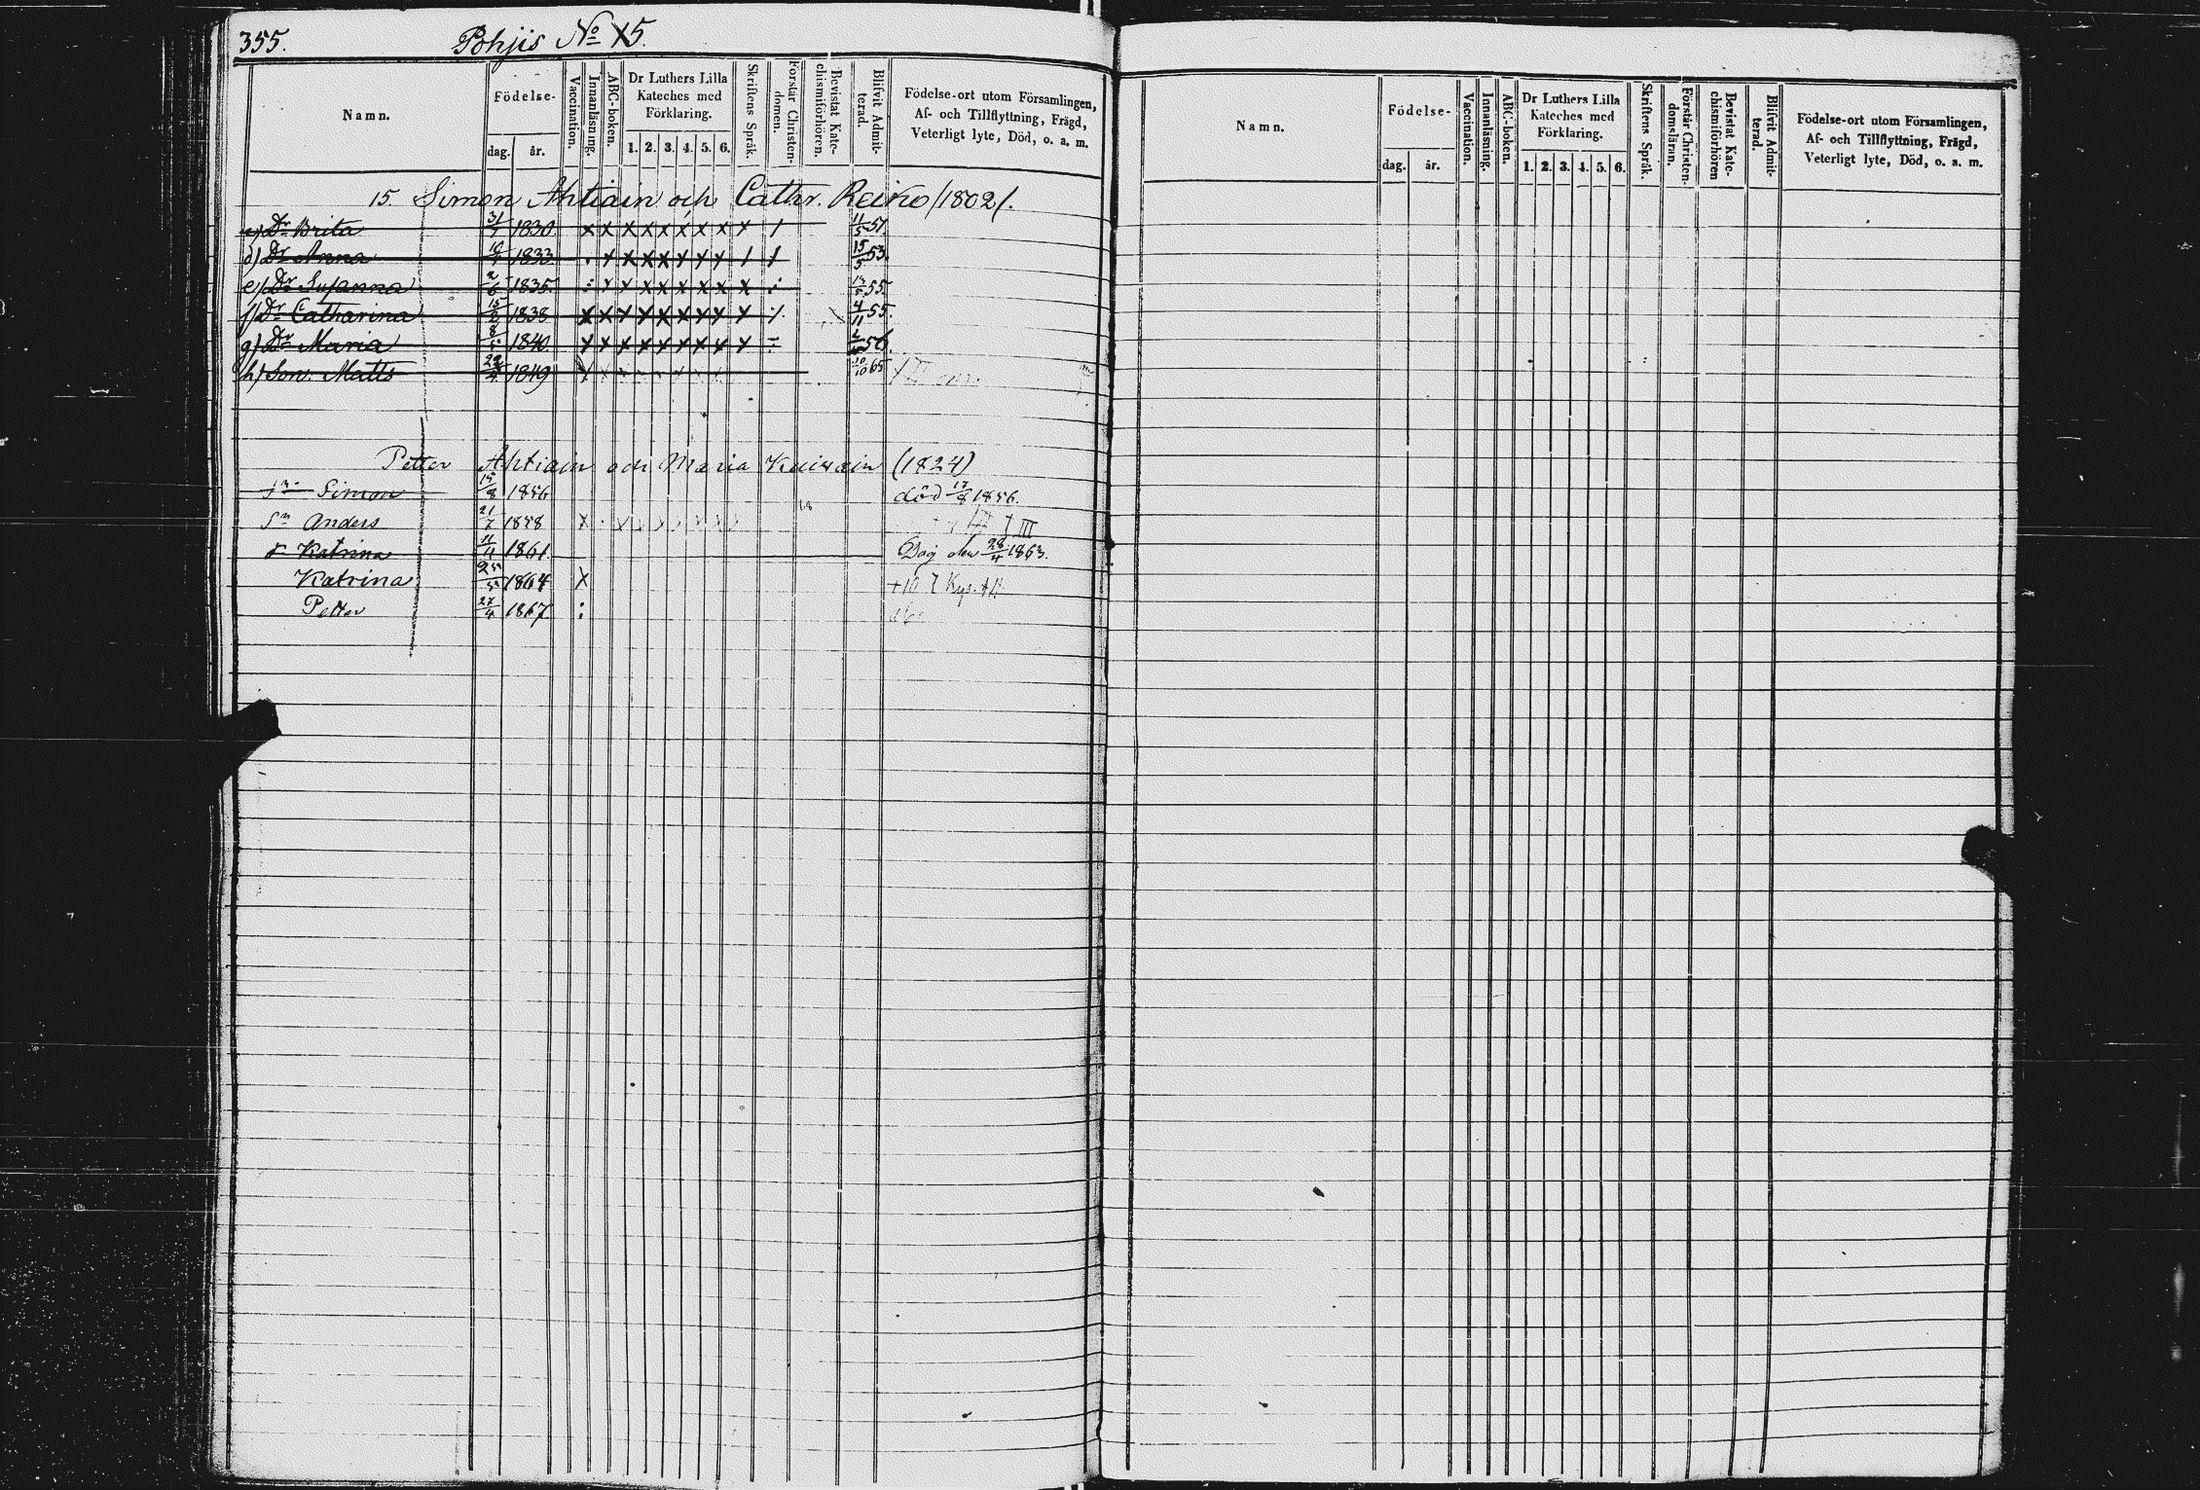 355. Pohjis No X5.
Namn. Födelse- dag. år. Vaccination. Innanläsning. ABC-boken. Dr Luthers Lilla Kateches med Förklaring. 1. 2. 3. 4. 5. 6. Skriftens Språk. Förstår Christendomen. Bevistat Katechismiförhören. Blifvit Admitterad. Födelse-ort utom Församlingen, Af- och Tillflyttning, Frägd, Veterligt lyte, Död, o. a. m.
15. Simon Ahtiain och Cathr. Reiko /1802/.
Dr Brita 31/7 1830 x x x x x x x x x / 11/5 51.
d) Dr Anna 1833 15/5 53.
e) Dr Susanna 2/6 1835 55.
f) Dr Catharina 15/2 1838 x x x x x x x x x 4/11 55.
g) Dr Maria 8/5 1840 x x x x x x x x x 56.
h) Son. Matts 1849 65
Petter Ahtiain och Maria (1824)
Simon 15/8 1856 död 17/8 1856.
Sn Anders 21/7 1858 x III
Katrina 11/4 1861. den 28/4 1863.
Katrina 25/5 1864 X
Petter 27/4 1867 :
Namn. Födelse- dag. år. Vaccination. Innanläsning. ABC-boken. Dr Luthers Lilla Kateches med Förklaring. 1. 2. 3. 4. 5. 6. Skriftens Språk. Förstår Christendomsläran. Bevistat Katechismiförhören Blifvit Admitterad. Födelse-ort utom Församlingen, Af- och Tillflyttning, Frägd, Veterligt lyte, Död, o. a. m.